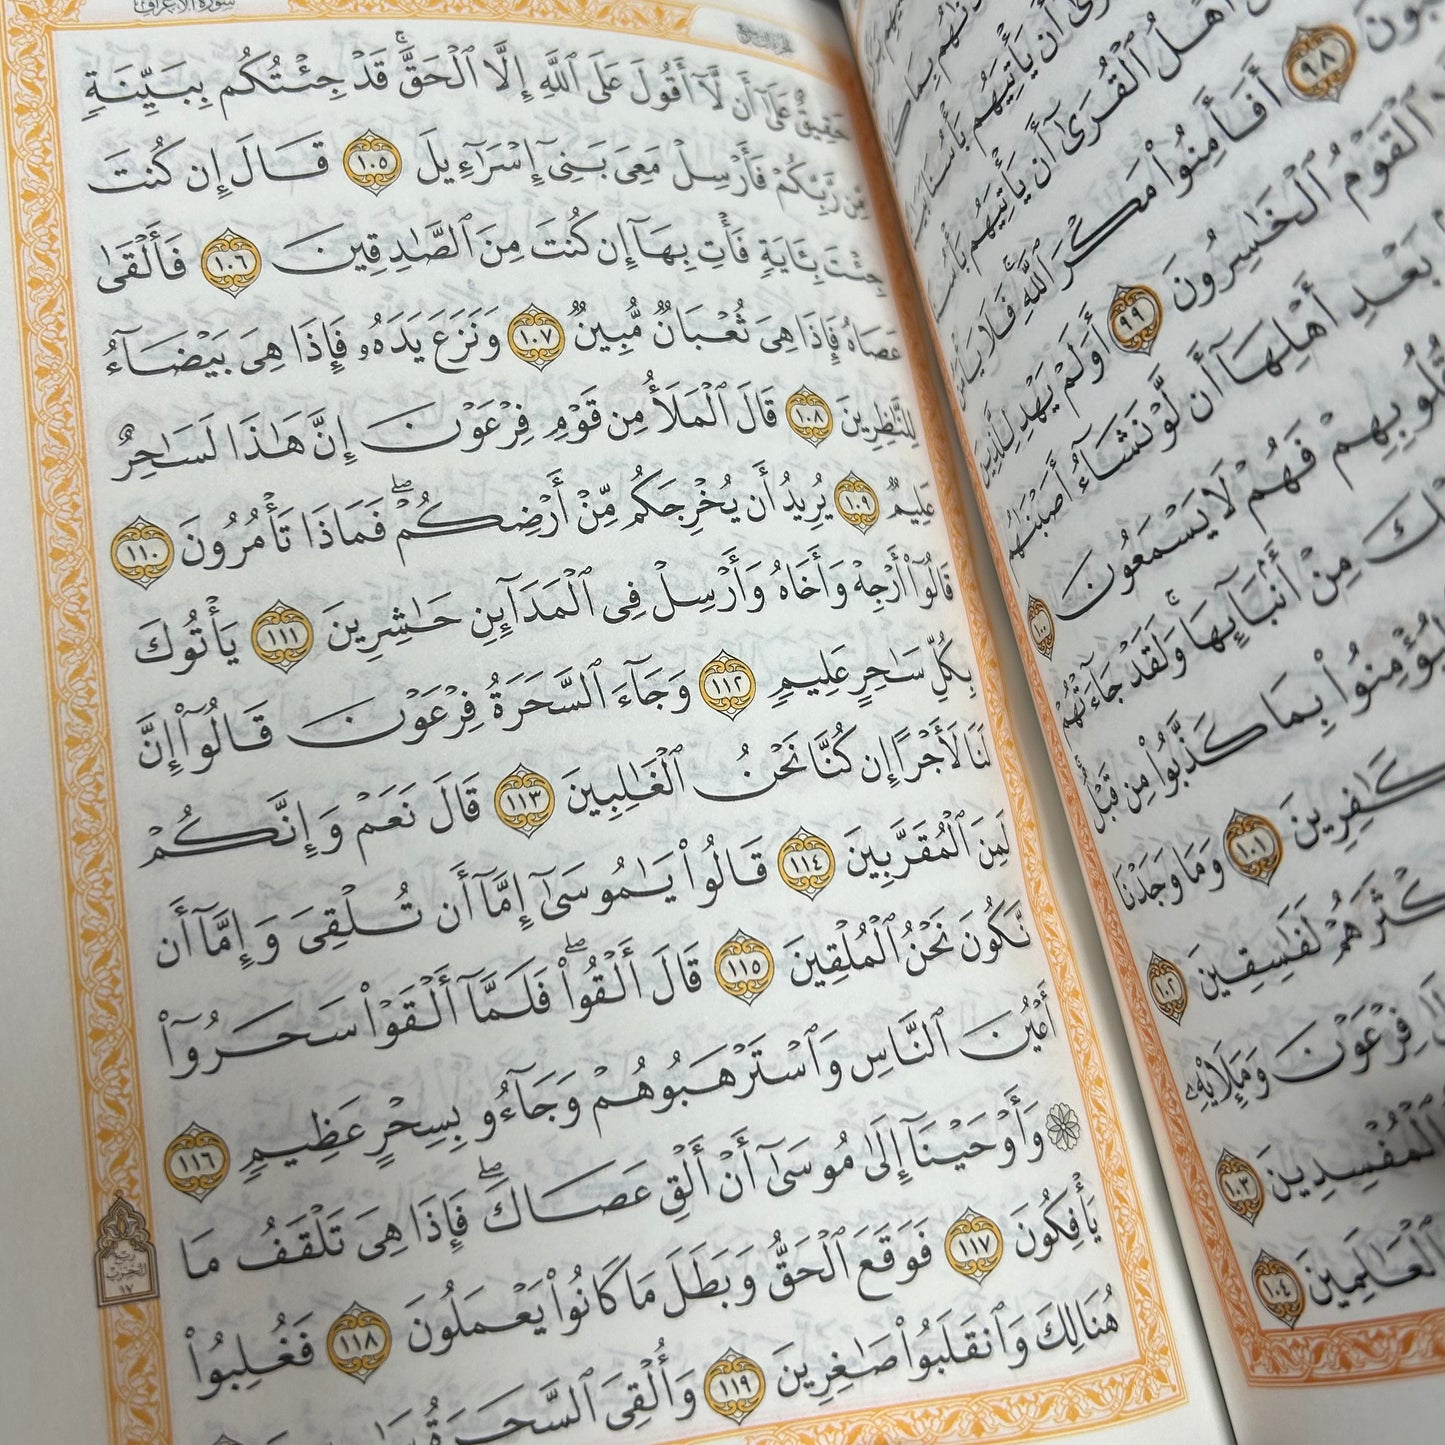 أَن يَأْتِيَهُم بَأْسُنَا
أَهْلُ ٱلْقُرَىٰٓ أَن يَأْتِيَهُم بَأْسُنَا
٩٨ أَفَأَمِنُوا۟ مَكْرَ ٱللَّهِ ۚ فَلَا يَأْمَنُ
ٱلْقَوْمُ ٱلْخَٰسِرُونَ ٩٩ أَوَلَمْ يَهْدِ لِلَّذِينَ
بَعْدِ أَهْلِهَآ أَن لَّوْ نَشَآءُ أَصَبْنَٰهُم
قُلُوبِهِمْ فَهُمْ لَا يَسْمَعُونَ ١٠٠
مِنْ أَنۢبَآئِهَا ۚ وَلَقَدْ جَآءَتْهُمْ
لِيُؤْمِنُوا۟ بِمَا كَذَّبُوا۟ مِن قَبْلُ ۚ
ٱلْكَٰفِرِينَ ١٠١ وَمَا وَجَدْنَا
أَكْثَرَهُمْ لَفَٰسِقِينَ ١٠٢
إِلَىٰ فِرْعَوْنَ وَمَلَإِي۟هِۦ
ٱلْمُفْسِدِينَ ١٠٣
ٱلْعَٰلَمِينَ ١٠٤
سورة الأعراف
حَقِيقٌ عَلَىٰٓ أَن لَّآ أَقُولَ عَلَى ٱللَّهِ إِلَّا ٱلْحَقَّ ۚ قَدْ جِئْتُكُم بِبَيِّنَةٍ
مِّن رَّبِّكُمْ فَأَرْسِلْ مَعِىَ بَنِىٓ إِسْرَٰٓءِيلَ ١٠٥ قَالَ إِن كُنتَ
جِئْتَ بِـَٔايَةٍ فَأْتِ بِهَآ إِن كُنتَ مِنَ ٱلصَّٰدِقِينَ ١٠٦ فَأَلْقَىٰ
عَصَاهُ فَإِذَا هِىَ ثُعْبَانٌ مُّبِينٌ ١٠٧ وَنَزَعَ يَدَهُۥ فَإِذَا هِىَ بَيْضَآءُ
لِلنَّٰظِرِينَ ١٠٨ قَالَ ٱلْمَلَأُ مِن قَوْمِ فِرْعَوْنَ إِنَّ هَٰذَا لَسَٰحِرٌ
عَلِيمٌ ١٠٩ يُرِيدُ أَن يُخْرِجَكُم مِّنْ أَرْضِكُمْ ۖ فَمَاذَا تَأْمُرُونَ ١١٠
قَالُوٓا۟ أَرْجِهْ وَأَخَاهُ وَأَرْسِلْ فِى ٱلْمَدَآئِنِ حَٰشِرِينَ ١١١ يَأْتُوكَ
بِكُلِّ سَٰحِرٍ عَلِيمٍ ١١٢ وَجَآءَ ٱلسَّحَرَةُ فِرْعَوْنَ قَالُوٓا۟ إِنَّ
لَنَا لَأَجْرًا إِن كُنَّا نَحْنُ ٱلْغَٰلِبِينَ ١١٣ قَالَ نَعَمْ وَإِنَّكُمْ
لَمِنَ ٱلْمُقَرَّبِينَ ١١٤ قَالُوا۟ يَٰمُوسَىٰٓ إِمَّآ أَن تُلْقِىَ وَإِمَّآ أَن
نَّكُونَ نَحْنُ ٱلْمُلْقِينَ ١١٥ قَالَ أَلْقُوا۟ ۖ فَلَمَّآ أَلْقَوْا۟ سَحَرُوٓا۟
أَعْيُنَ ٱلنَّاسِ وَٱسْتَرْهَبُوهُمْ وَجَآءُو بِسِحْرٍ عَظِيمٍ ١١٦
۞ وَأَوْحَيْنَآ إِلَىٰ مُوسَىٰٓ أَنْ أَلْقِ عَصَاكَ ۖ فَإِذَا هِىَ تَلْقَفُ مَا
يَأْفِكُونَ ١١٧ فَوَقَعَ ٱلْحَقُّ وَبَطَلَ مَا كَانُوا۟ يَعْمَلُونَ ١١٨ فَغُلِبُوا۟
هُنَالِكَ وَٱنقَلَبُوا۟ صَٰغِرِينَ ١١٩ وَأُلْقِىَ ٱلسَّحَرَةُ
الحزب
١٧